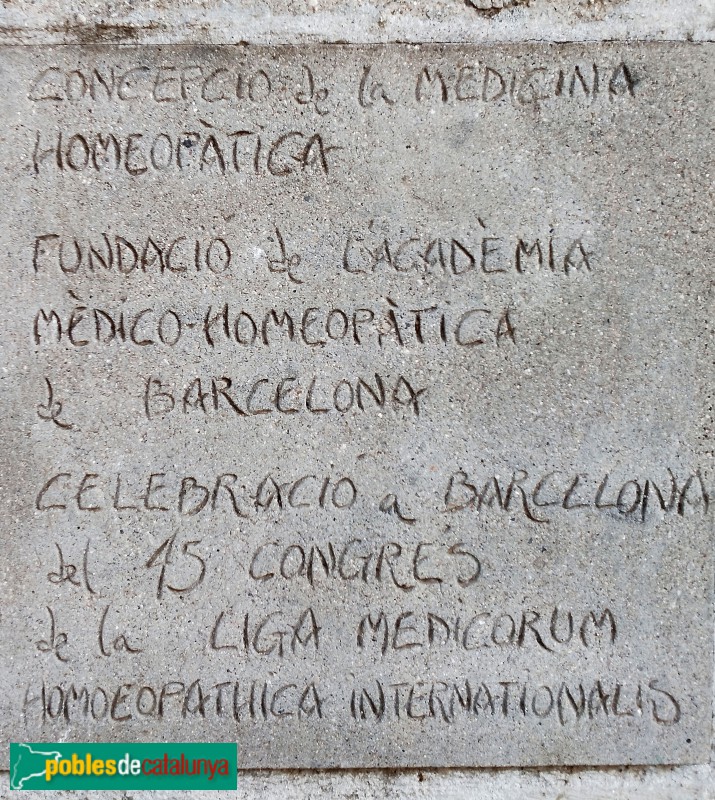 CONCEPCIO de la MEDICINA
HOMEOPÀTICA
FUNDACIO de L'ACADÈMIA
MÈDICO-HOMEOPÀTICA
de BARCELONA
CELEBRACIO a BARCELONA
del 45 CONGRES
de la LIGA MEDICORUM
HOMOEOPATHICA INTERNATIONALIS
poblesdecatalunya